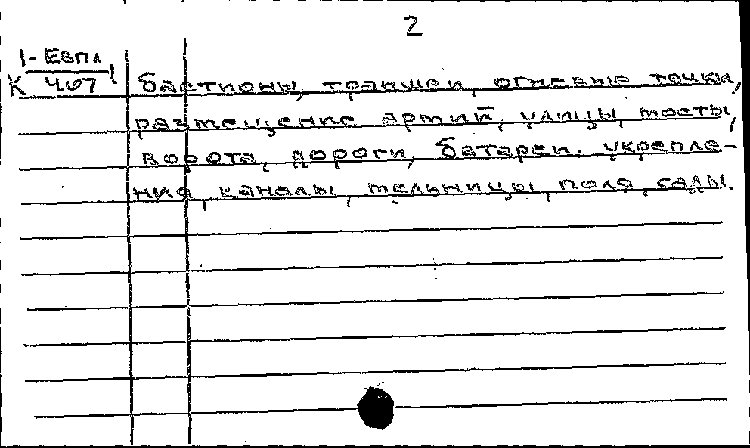 2
1-Евпл
К 467
бастионы, траншеи, огневые точки,
размещение армий, улицы, мосты,
ворота, дороги, батареи, укрепле-
ния, каналы, мельницы, поля, сады.